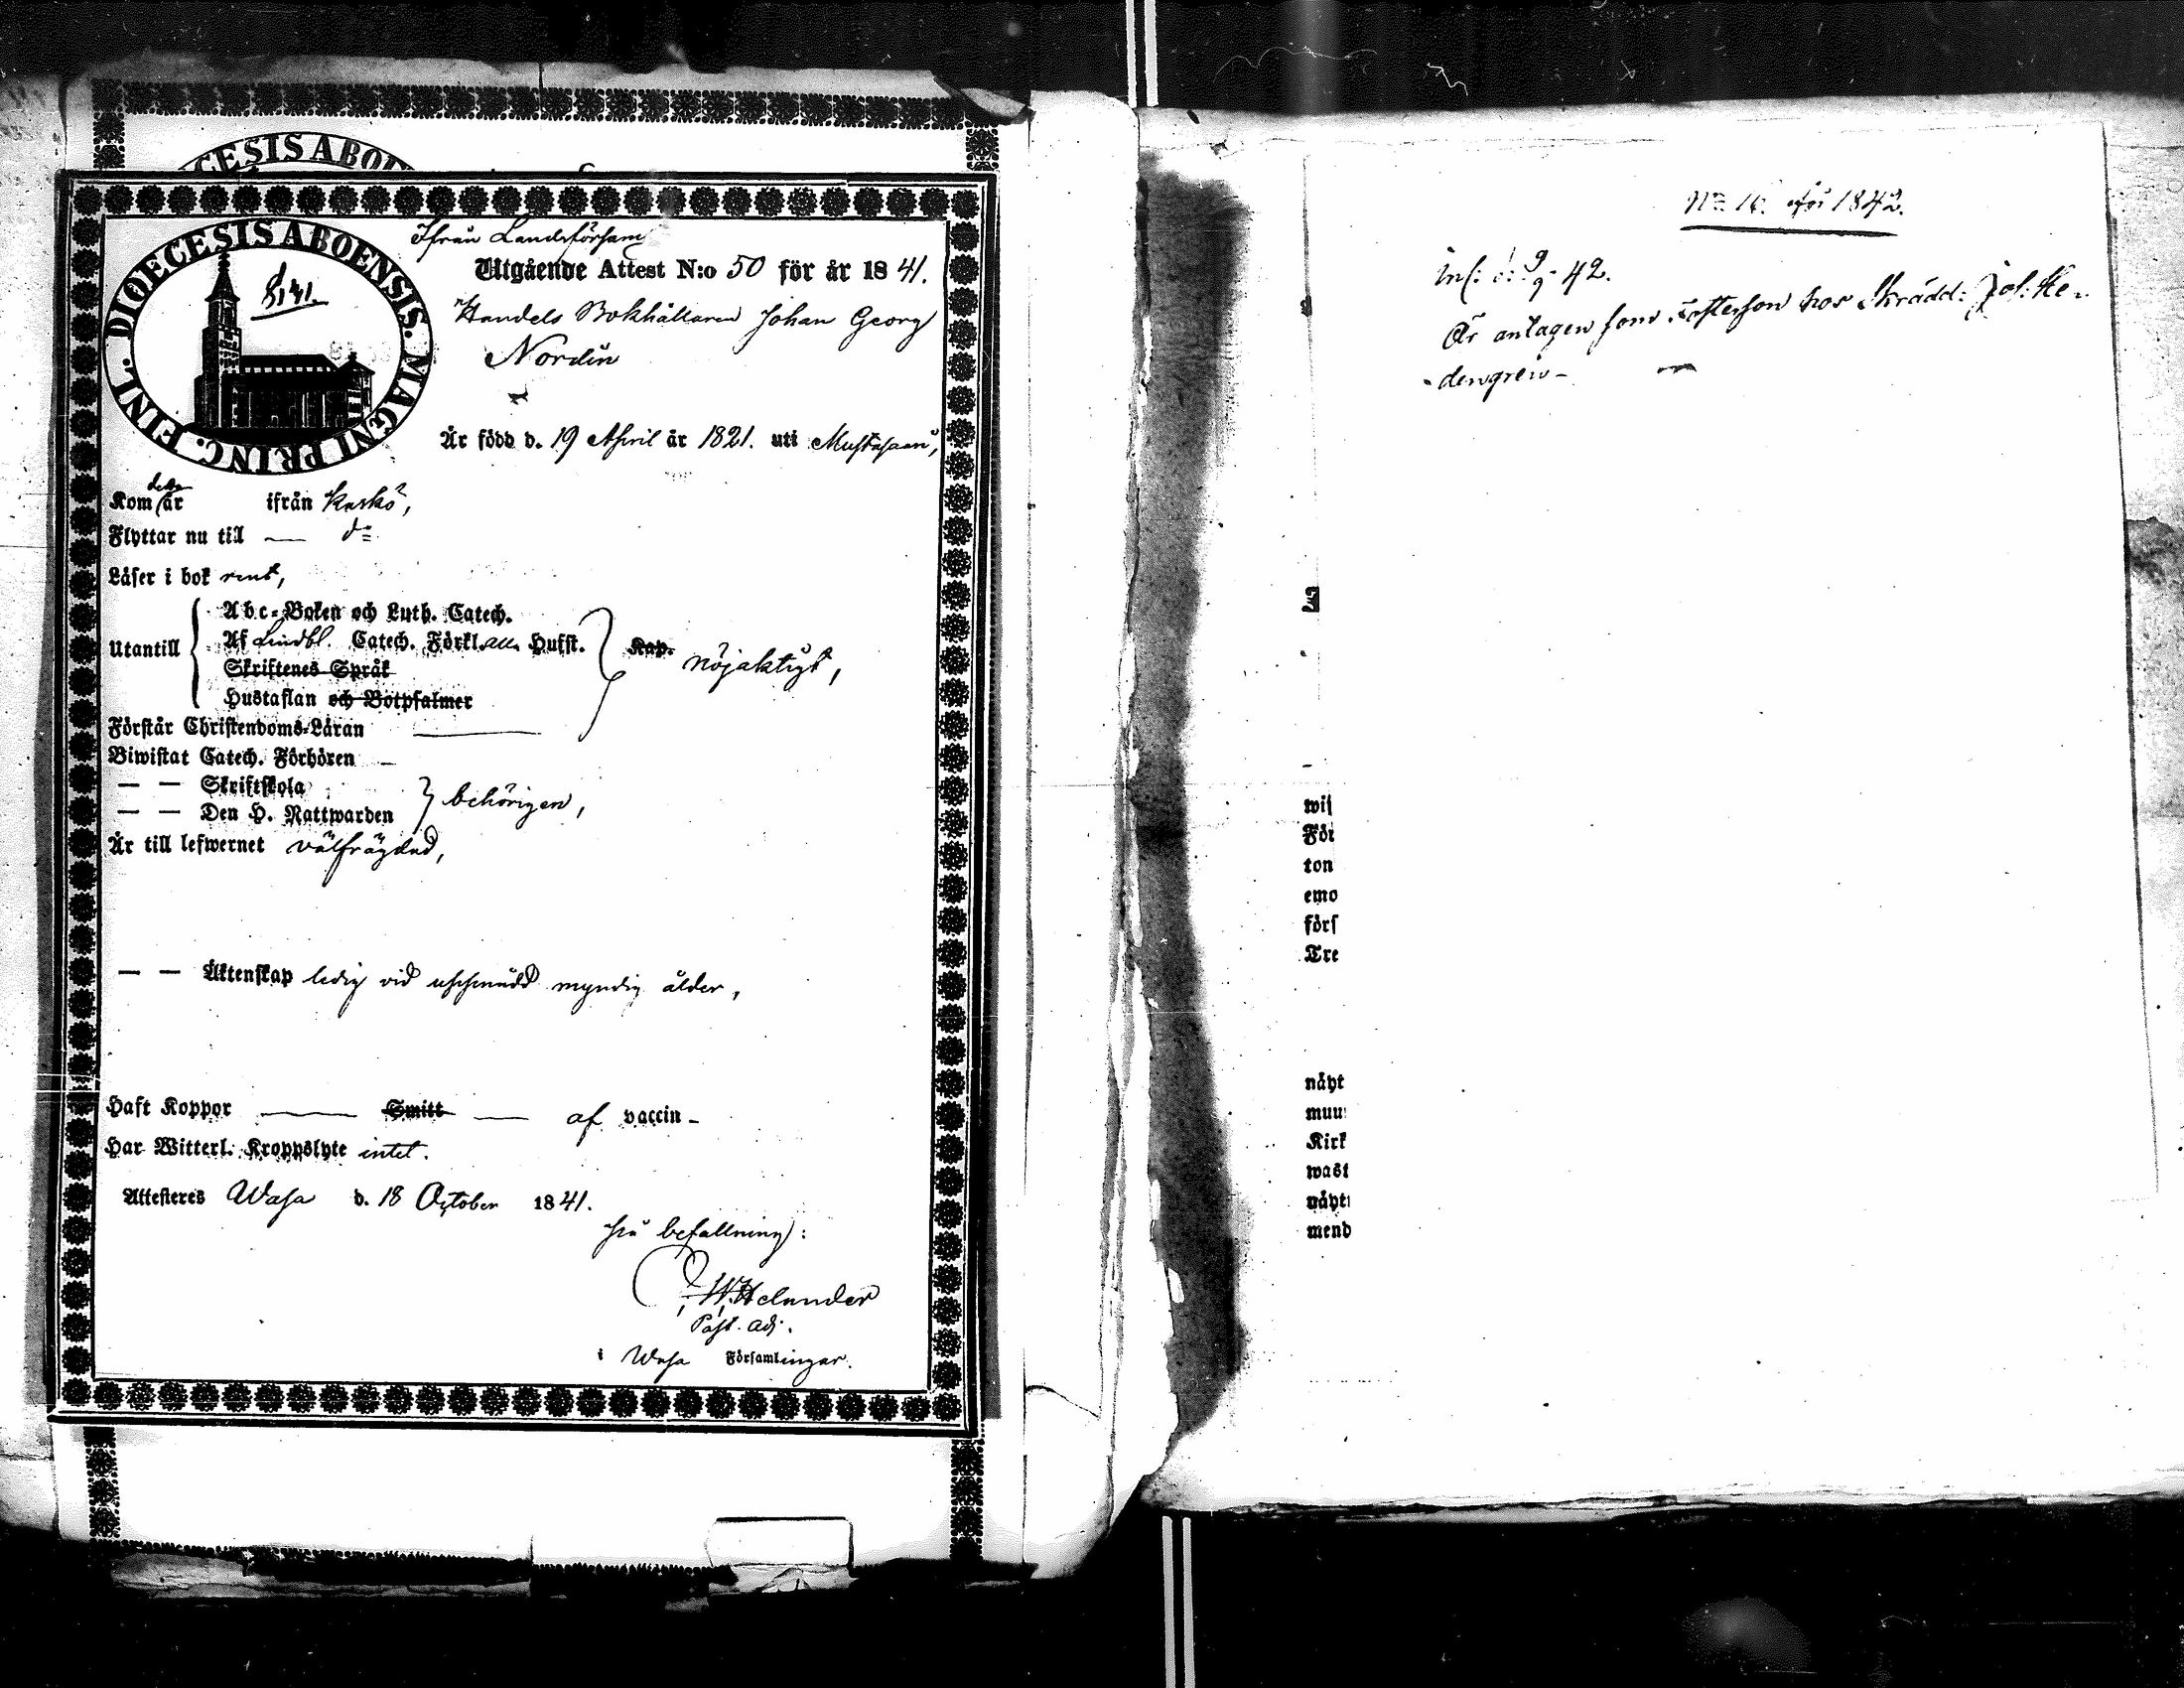 CESIS ABO
DIOECESIS ABOENSIS. MAGNI PRINC. FINL.
Ifrån Landsförsam
Utgående Attest N:o 50 för år 1841.
Handels Bokhållaren Johan Georg
Nordin
Är född d. 19 April år 1821. uti Mustasaari,
Kom detta år ifrån Kaskö,
Flyttar nu till — do
Läser i bok rent,
Utantill
Abc-Boken och Luth. Catech.
Af Lindbl. Catech. Förkl. alla Hufst. Kap. nöjaktigt,
Skriftenes Språk
Hustaflan och Botpsalmer
Förstår Christendoms-Läran —
Biwistat Catech. Förhören —
— — Skriftskola
— — Den H. Nattwarden behörigen,
Är till lefwernet välfrägdad,
— — Äktenskap ledig vid uppnådd myndig ålder,
Haft Koppor — Smitt — af vaccin -
Har Witterl. Kroppslyte intet.
Attesteres Wasa d. 18 October 1841.
På befallning:
W. Helander
Past. Adj.
i Wasa Församlingar.
för 1842.
42.
Är antagen som hos Skrädd:
-dengren-
wis
För
ton
emo
förs
Tre
näyt
muu
Kirk
wast
näyt
mend